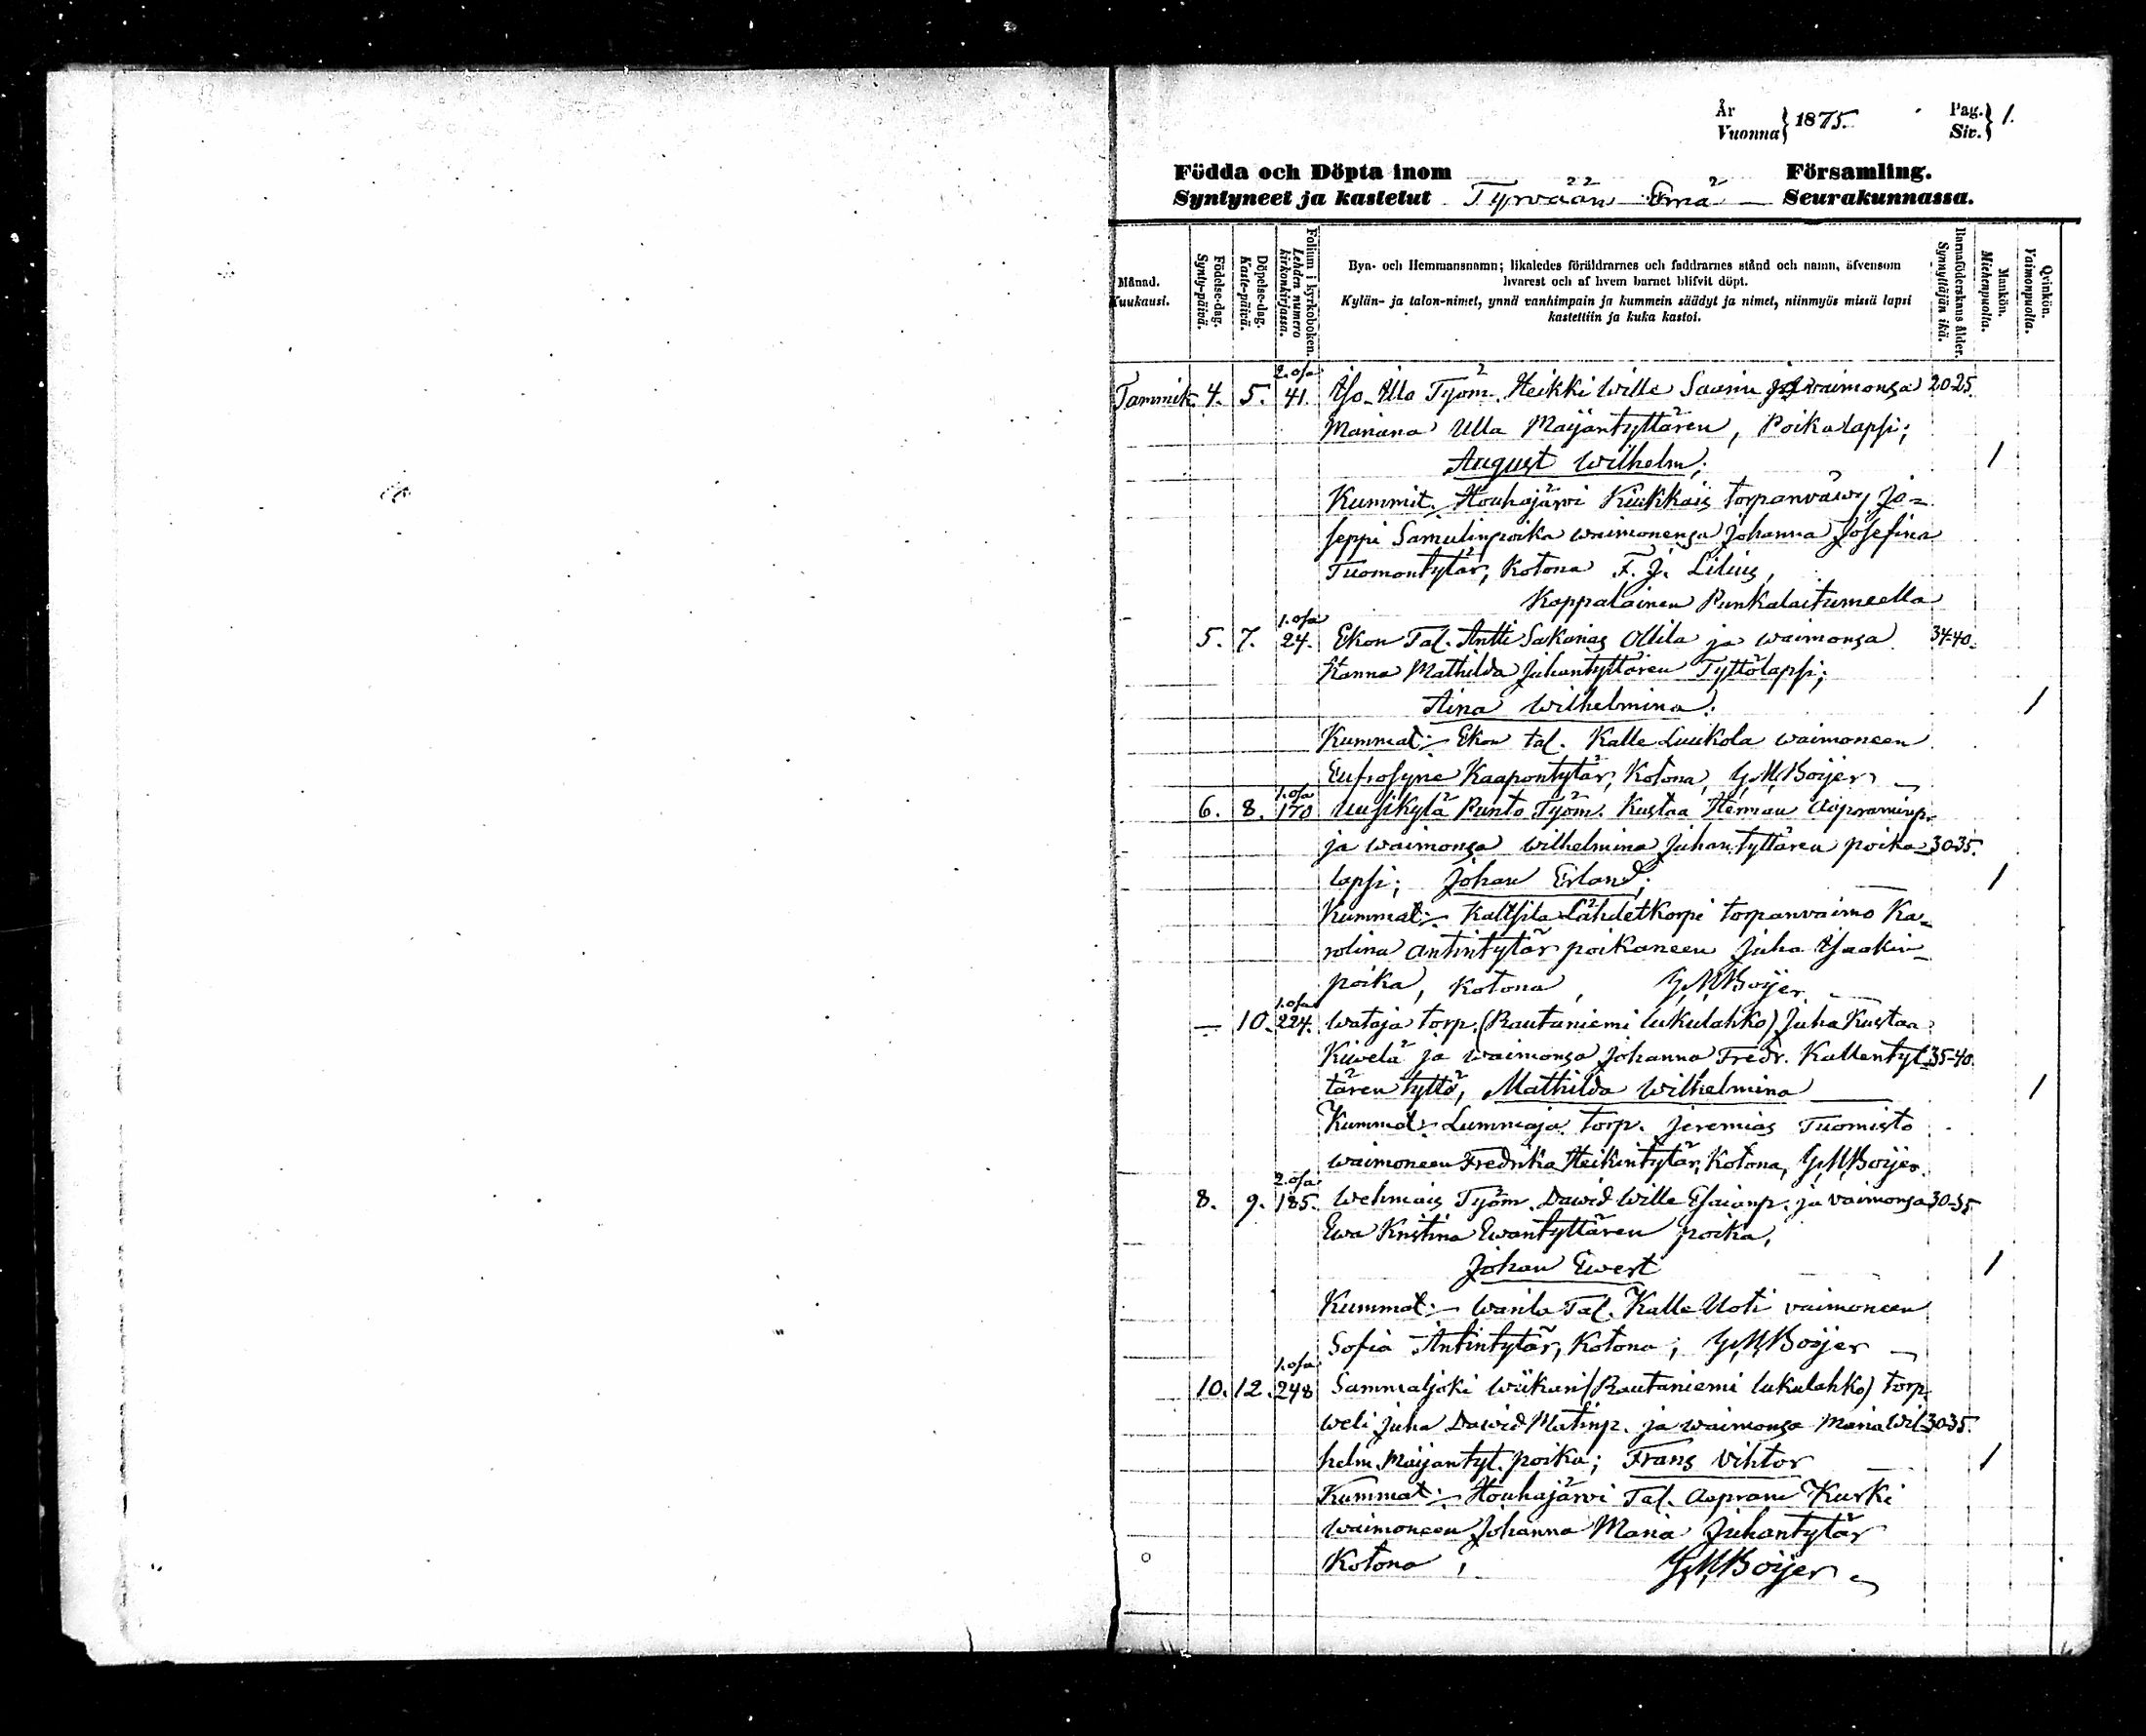 År
Vuonna } 1875.
Pag.
Siv. } 1.
Födda och Döpta inom Församling.
Syntyneet ja kastetut Tyrvään Emä Seurakunnassa.
Månad.
Kuukausi.
Födelse-dag.
Synty-päivä.
Döpelse-dag.
Kaste-päivä.
Folium i kyrkoboken.
Lehden numero kirkonkirjassa.
Bya- och Hemmansnamn; likaledes föräldrarnes och faddrarnes stånd och namn, äfvensom
hvarest och af hvem barnet blifvit döpt.
Kylän- ja talon-nimet, ynnä vanhimpain ja kummein säädyt ja nimet, niinmyös missä lapsi
kastettiin ja kuka kastoi.
Barnaföderskans ålder.
Synnyttäjän ikä.
Mankön.
Miehenpuolta.
Qvinkön.
Vaimonpuolta.
2. osa
Tammik. 4. 5. 41. Työm. Heikki Wille ja waimonsa 20-25.
Ulla Maijantyttären, Poikalapsi;
August Wilhelm; 1
Kummit. Houhajärvi Kiukkais torpanväwy Jo=
seppi Samulinpoika waimonensa Johanna Josefina
Tuomontytär, Kotona F. J. Lilius,
Kappalainen Punkalaitumella
1. osa
5. 7. 24. Ekon Tal. Antti Sakarias Ollila ja waimonsa 34-40.
Hanna Mathilda Juhantyttären Tyttölapsi;
Aina Wilhelmina. 1
Kummat:- Ekon tal. Kalle Luukola waimoneen
Eufrosyne Kaapontytär, Kotona, G. M. Boijer
1. osa
6. 8. 170 Uusikylä Punto Työm. Kustaa Herman Aapraminp.
ja waimonsa Wilhelmina Juhantyttären poika- 30-35.
lapsi; Johan Erland; 1
Kummat:- Kaltsila Lähdetkorpi torpanvaimo Ka=
rolina Antintytär poikaneen Juha Isaakin-
poika, Kotona, G. M. Boijer
1. osa
— 10. 224. Wataja torp. (Rautaniemi lukulahko) Juha Kustaa
Kiwelä ja waimonsa Johanna Fredr. Kallentyt 35-40.
tären tyttö, Mathilda Wilhelmina 1
Kummat:- Lummaja torp. Jeremias Tuomisto
waimoneen Fredrika Heikintytär, Kotona, G. M. Boijer.
2. osa
8. 9. 185. Wehmais Työm. Dawid Wille Esaianp. ja vaimonsa 30-35
Ewa Kristina Ewantyttären poika,
Johan Ewert 1
Kummat:- Warila Tal. Kalle Uoti vaimoneen
Sofia Antintytär, Kotona; G. M. Boijer
1. osa
10. 12. 248 Sammaljoki (Rautaniemi lukulahko) torp.
weli Juha Dawid Matinp. ja waimonsa Maria Wil 30-35.
helm. Maijantyt. poika; Frans Vihtor 1
Kummat:- Houhajärvi Tal. Aapram Kurki
waimoneen Johanna Maria Juhantytär
Kotona; G. M. Boijer